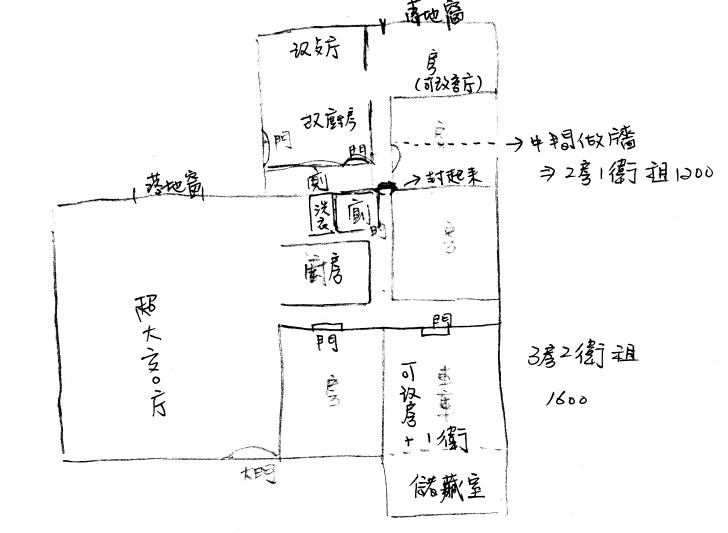 落地窗
改卧厅
房
(可改客厅)
改廚房
門
門
房
→中間做牆
⇒2房1衛租1200
落地窗
厕
→封起来
洗衣
厠
門
房
厨房
超大客厅
門
門
房
可改房
+1衛
車庫
3房2衛租
1600
大門
儲藏室